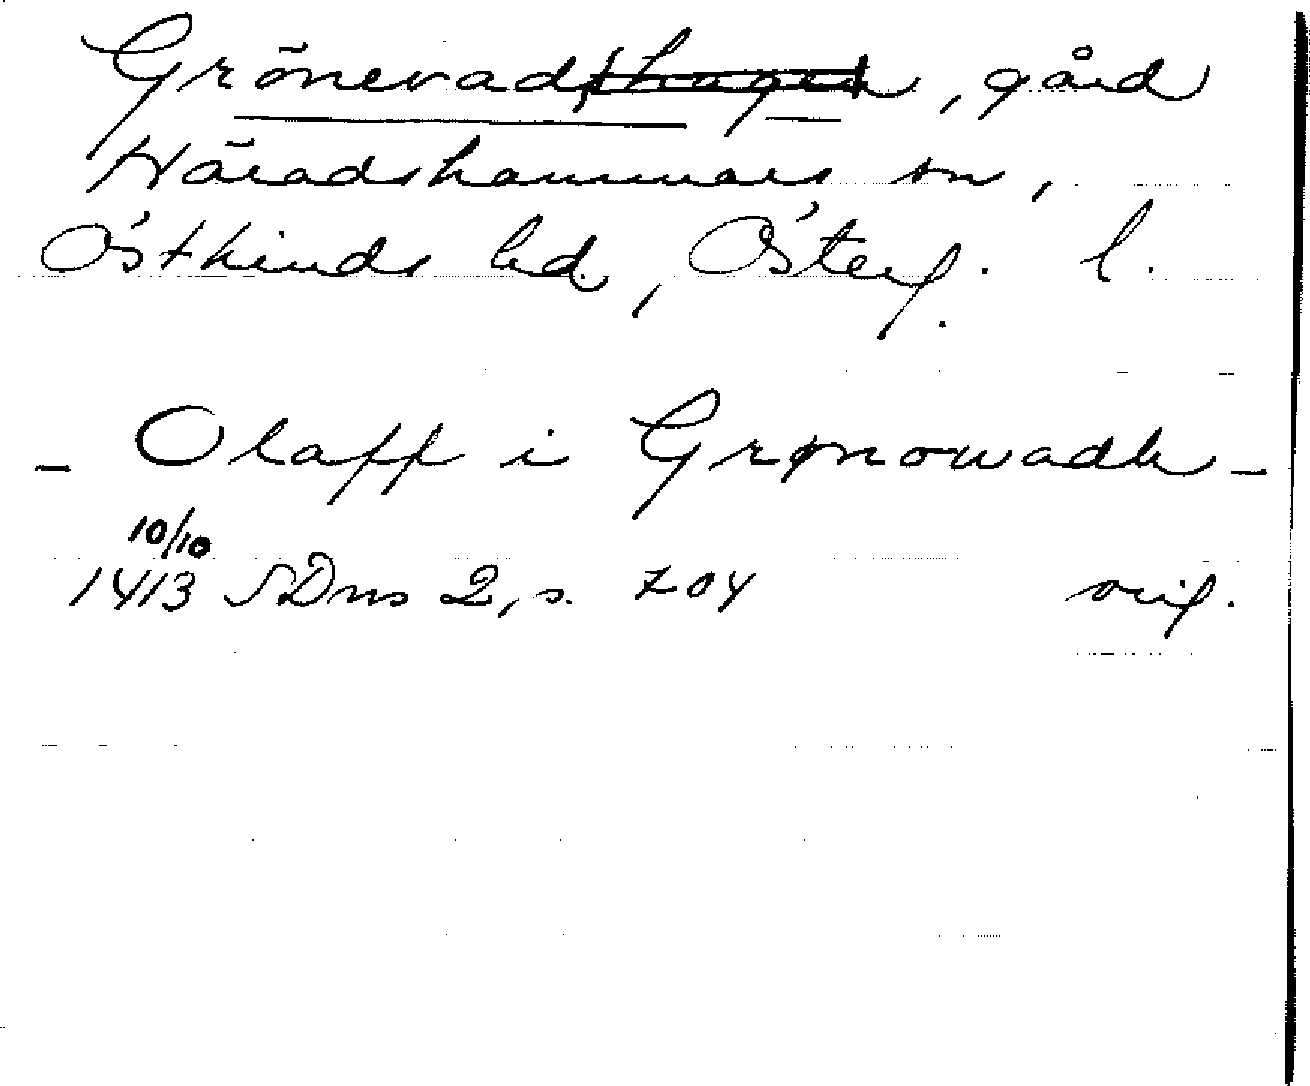 Grönevad, gård
Häradshammars sn,
Östkinds hd, Österg. l.
- Olaff i Grønowadh -
10/10
1413 SDns 2, s. 704 orig.